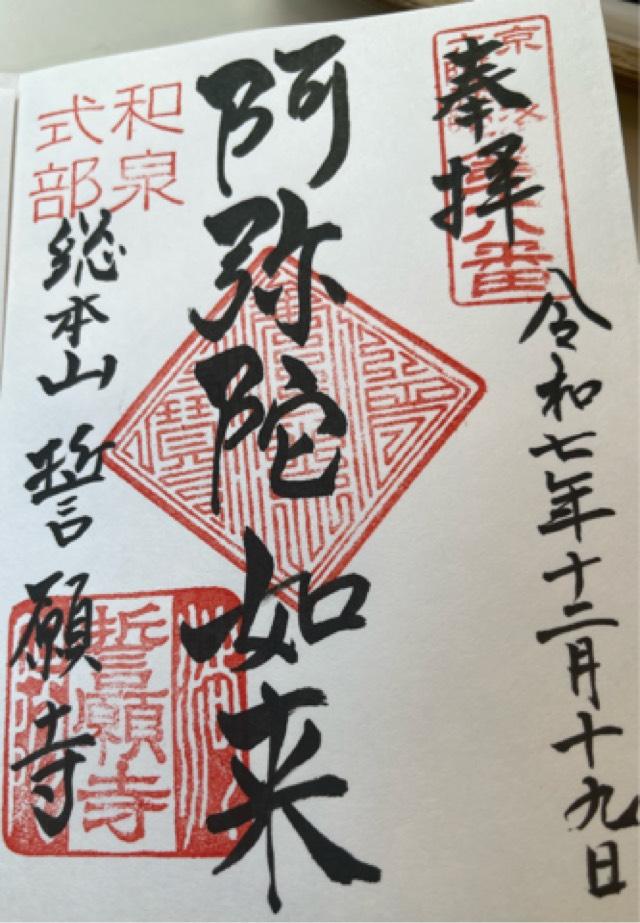 奉拝
令和七年十二月十九日
阿弥陀如来
和泉
式部
総本山 誓願寺
誓願寺